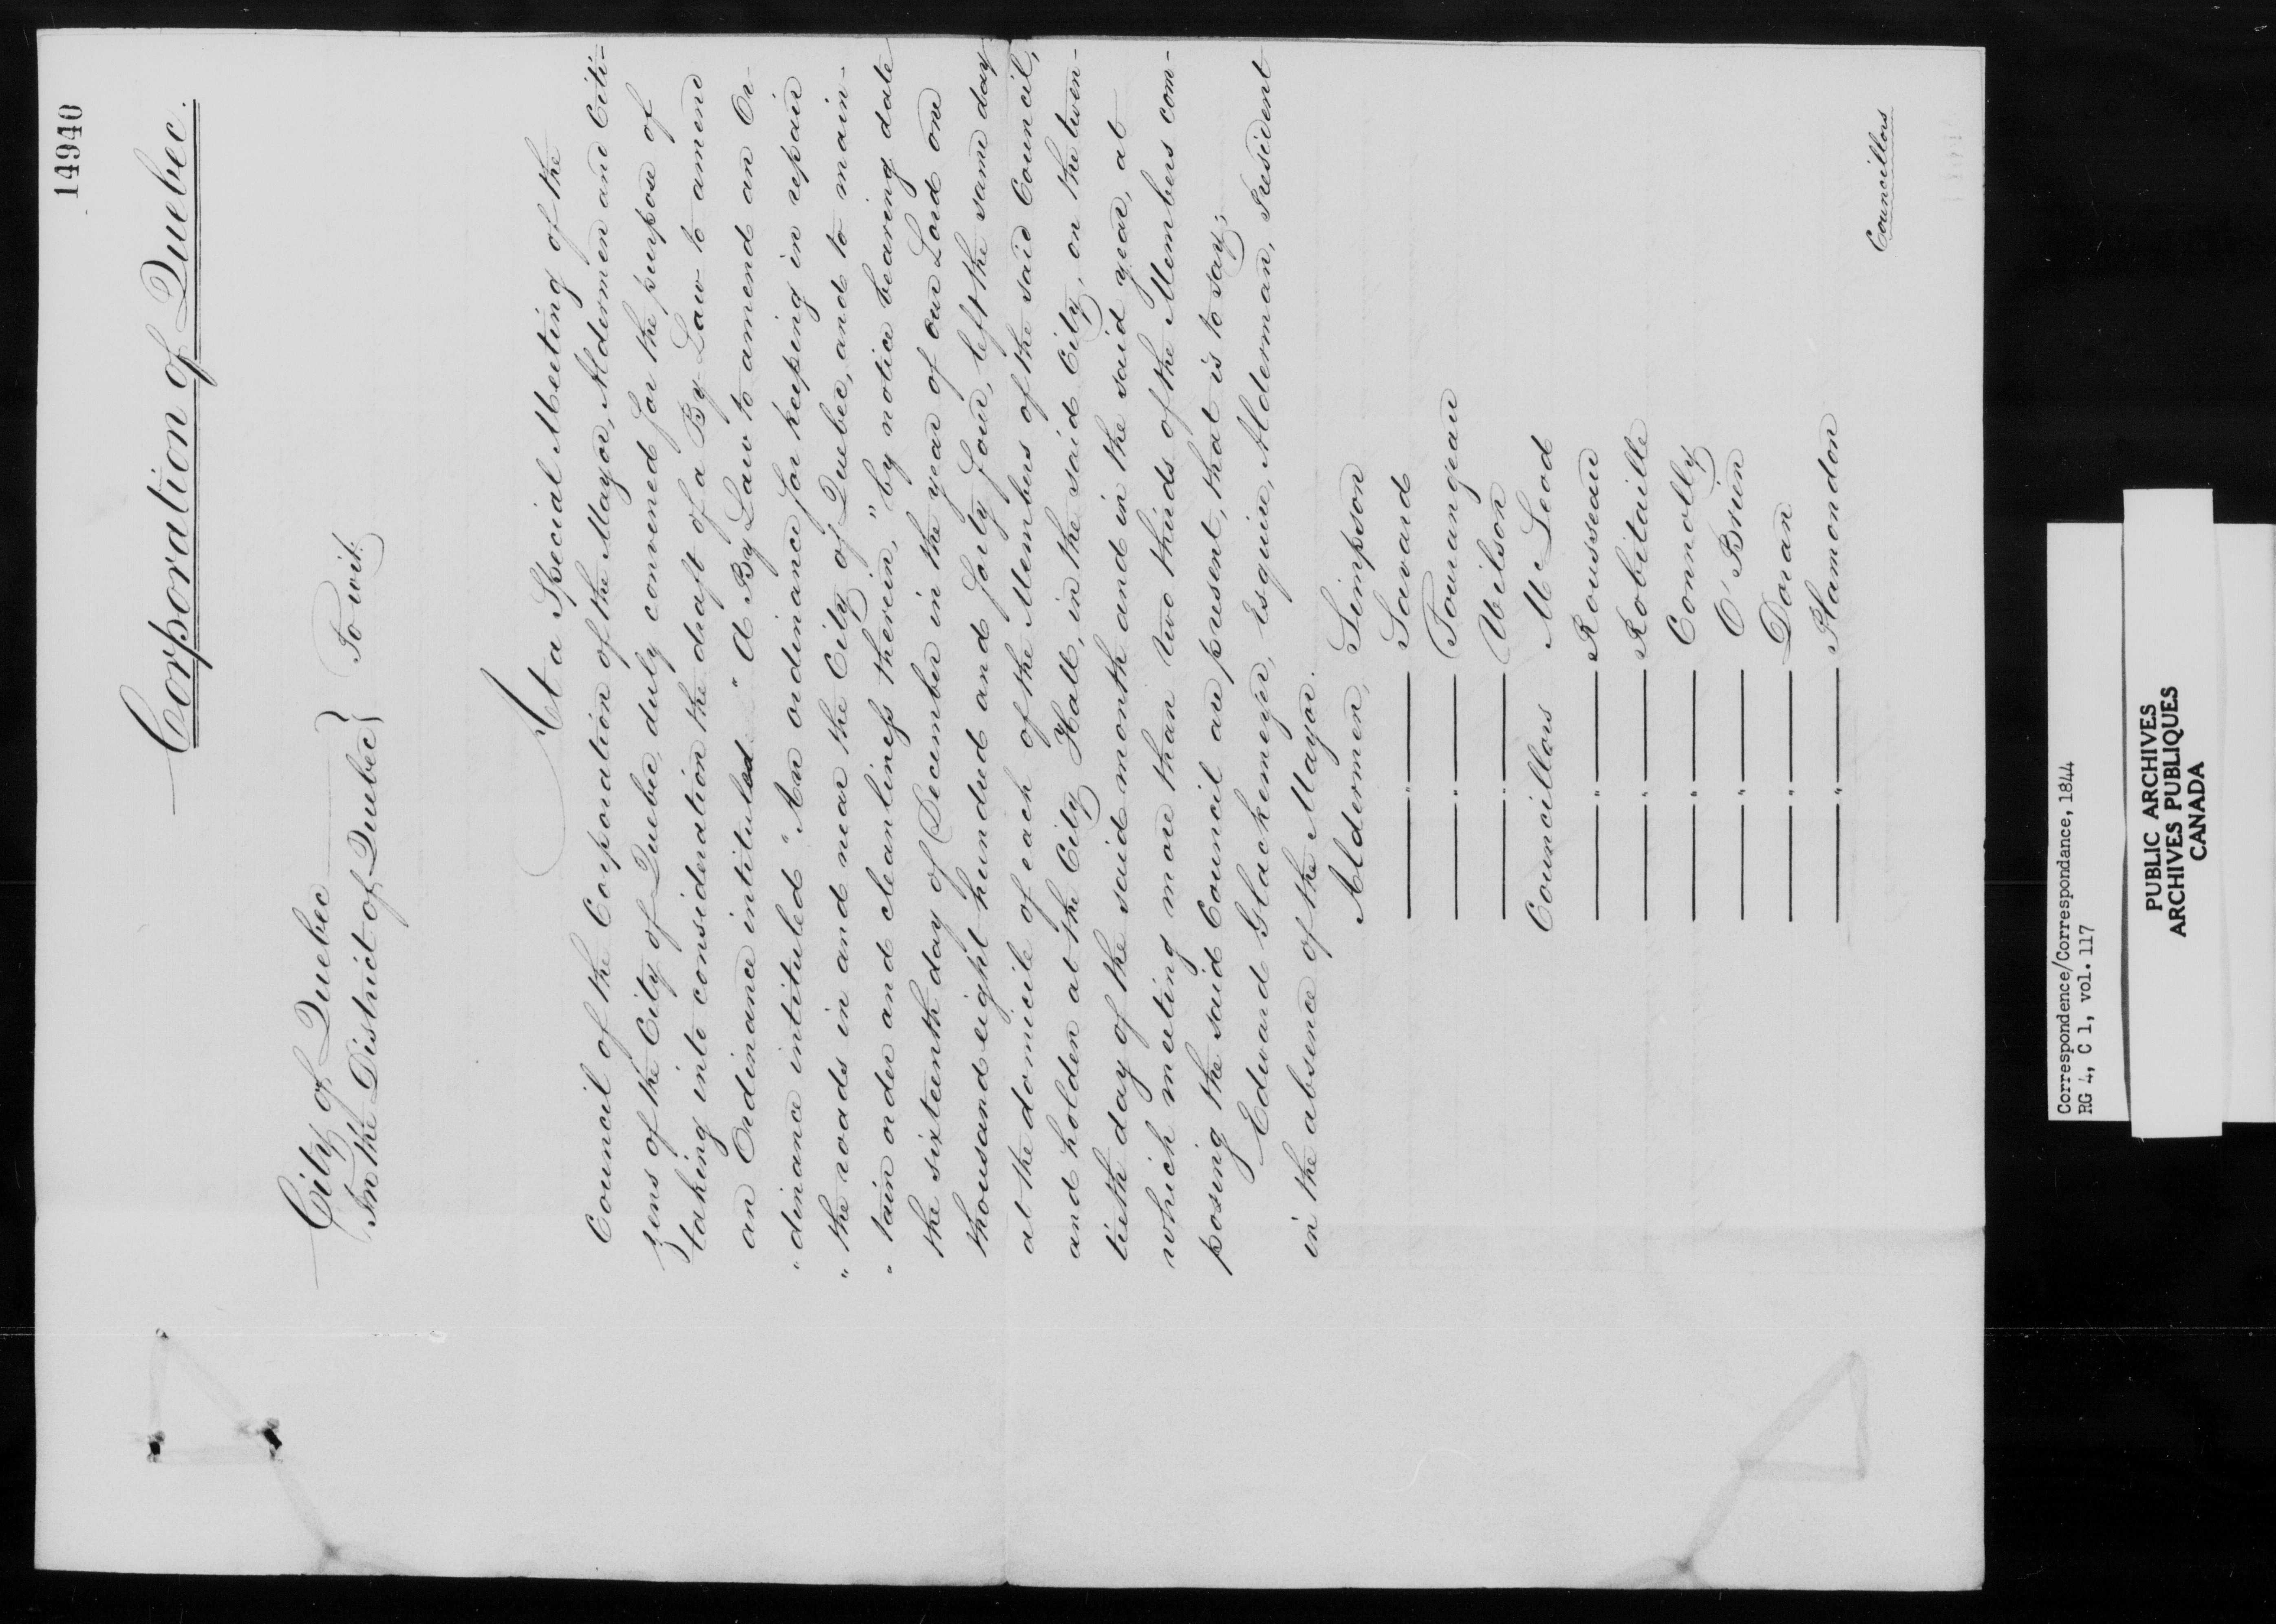 14940
Corporation of Quebec.
City of Quebec
In the District of Quebec } To wit:
At a Special Meeting of the
Council of the Corporation of the Mayor, Aldermen and Citi-
zens of the City of Quebec, duly convened for the purpose of
taking into consideration the draft of a By Law to amend
an Ordinance intituled "A By Law to amend an Or-
"dinance intituled "An ordinance for keeping in repair
"the roads in and near the City of Quebec, and to main-
"tain order and cleanliness therein," by notice bearing date
the sixteenth day of December in the year of our Lord one
thousand eight hundred and forty four, left the same day
at the domicile of each of the Members of the said Council,
and holden at the City Hall, in the said City, on the twen-
tieth day of the said month and in the said year, at
which meeting more than two thirds of the Members com-
posing the said Council are present, that is to say;
Edward Glackemeyer, Esquire, Alderman, President
in the absence of the Mayor.
Aldermen, Simpson
" Savard
" Tourangeau
" Wilson
Councillors McLeod
" Rousseau
" Robitaille
" Connolly
" O'Brien
" Doran
" Plamondon
Councillors
Correspondence/Correspondance, 1844
RG 4, C 1, vol. 117
PUBLIC ARCHIVES
ARCHIVES PUBLIQUES
CANADA